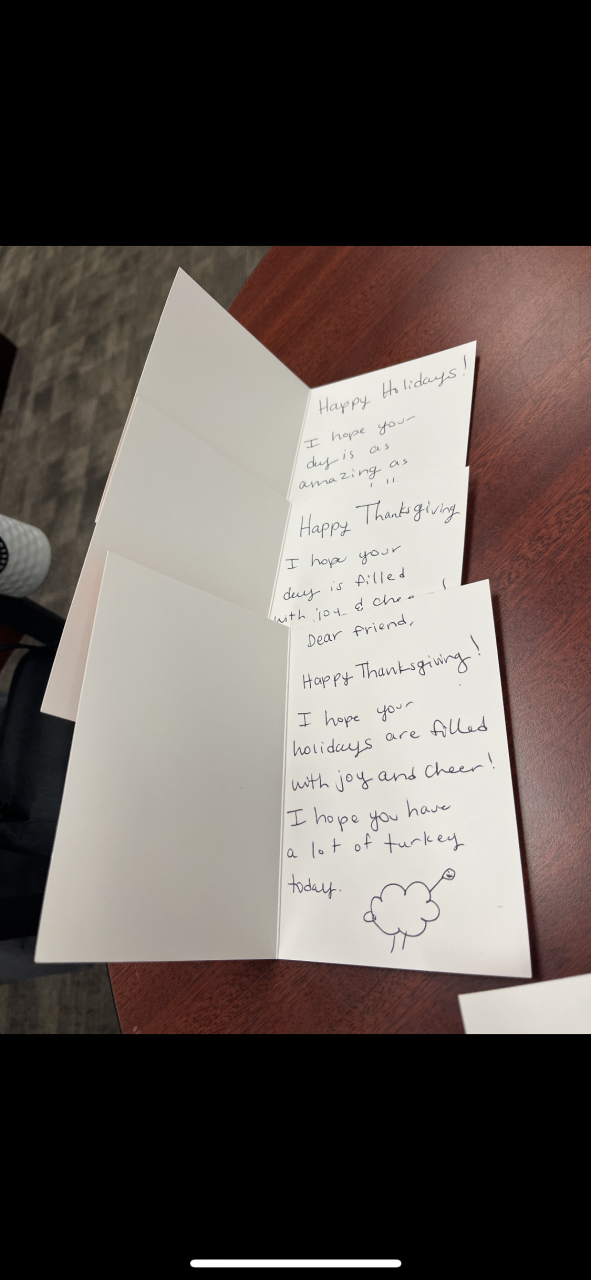 Happy Holidays!
I hope your
day is as
amazing as
Happy Thanksgiving
I hope your
day is filled
with joy &
Dear friend,
Happy Thanksgiving!
I hope your
holidays are filled
with joy and cheer!
I hope you have
a lot of turkey
today.